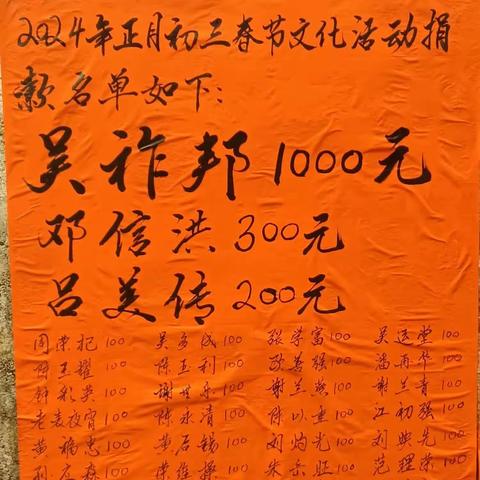 2024年正月初三春节文化活动捐
款名单如下：
吴祚邦1000元
邓信洪300元
吕美传200元
周荣杞100 吴多成100 张学富100 吴运堂100
陈玉耀100 陈玉利100 欧善强100 潘再华100
钟彩英100 谢世乐100 谢兰燕100 谢兰青100
老表夜宵100 陈永清100 陈以重100 江初强100
黄福忠100 黄石锡100 刘灼光100 刘典先100
100 100 朱岳旺100 范理荣100